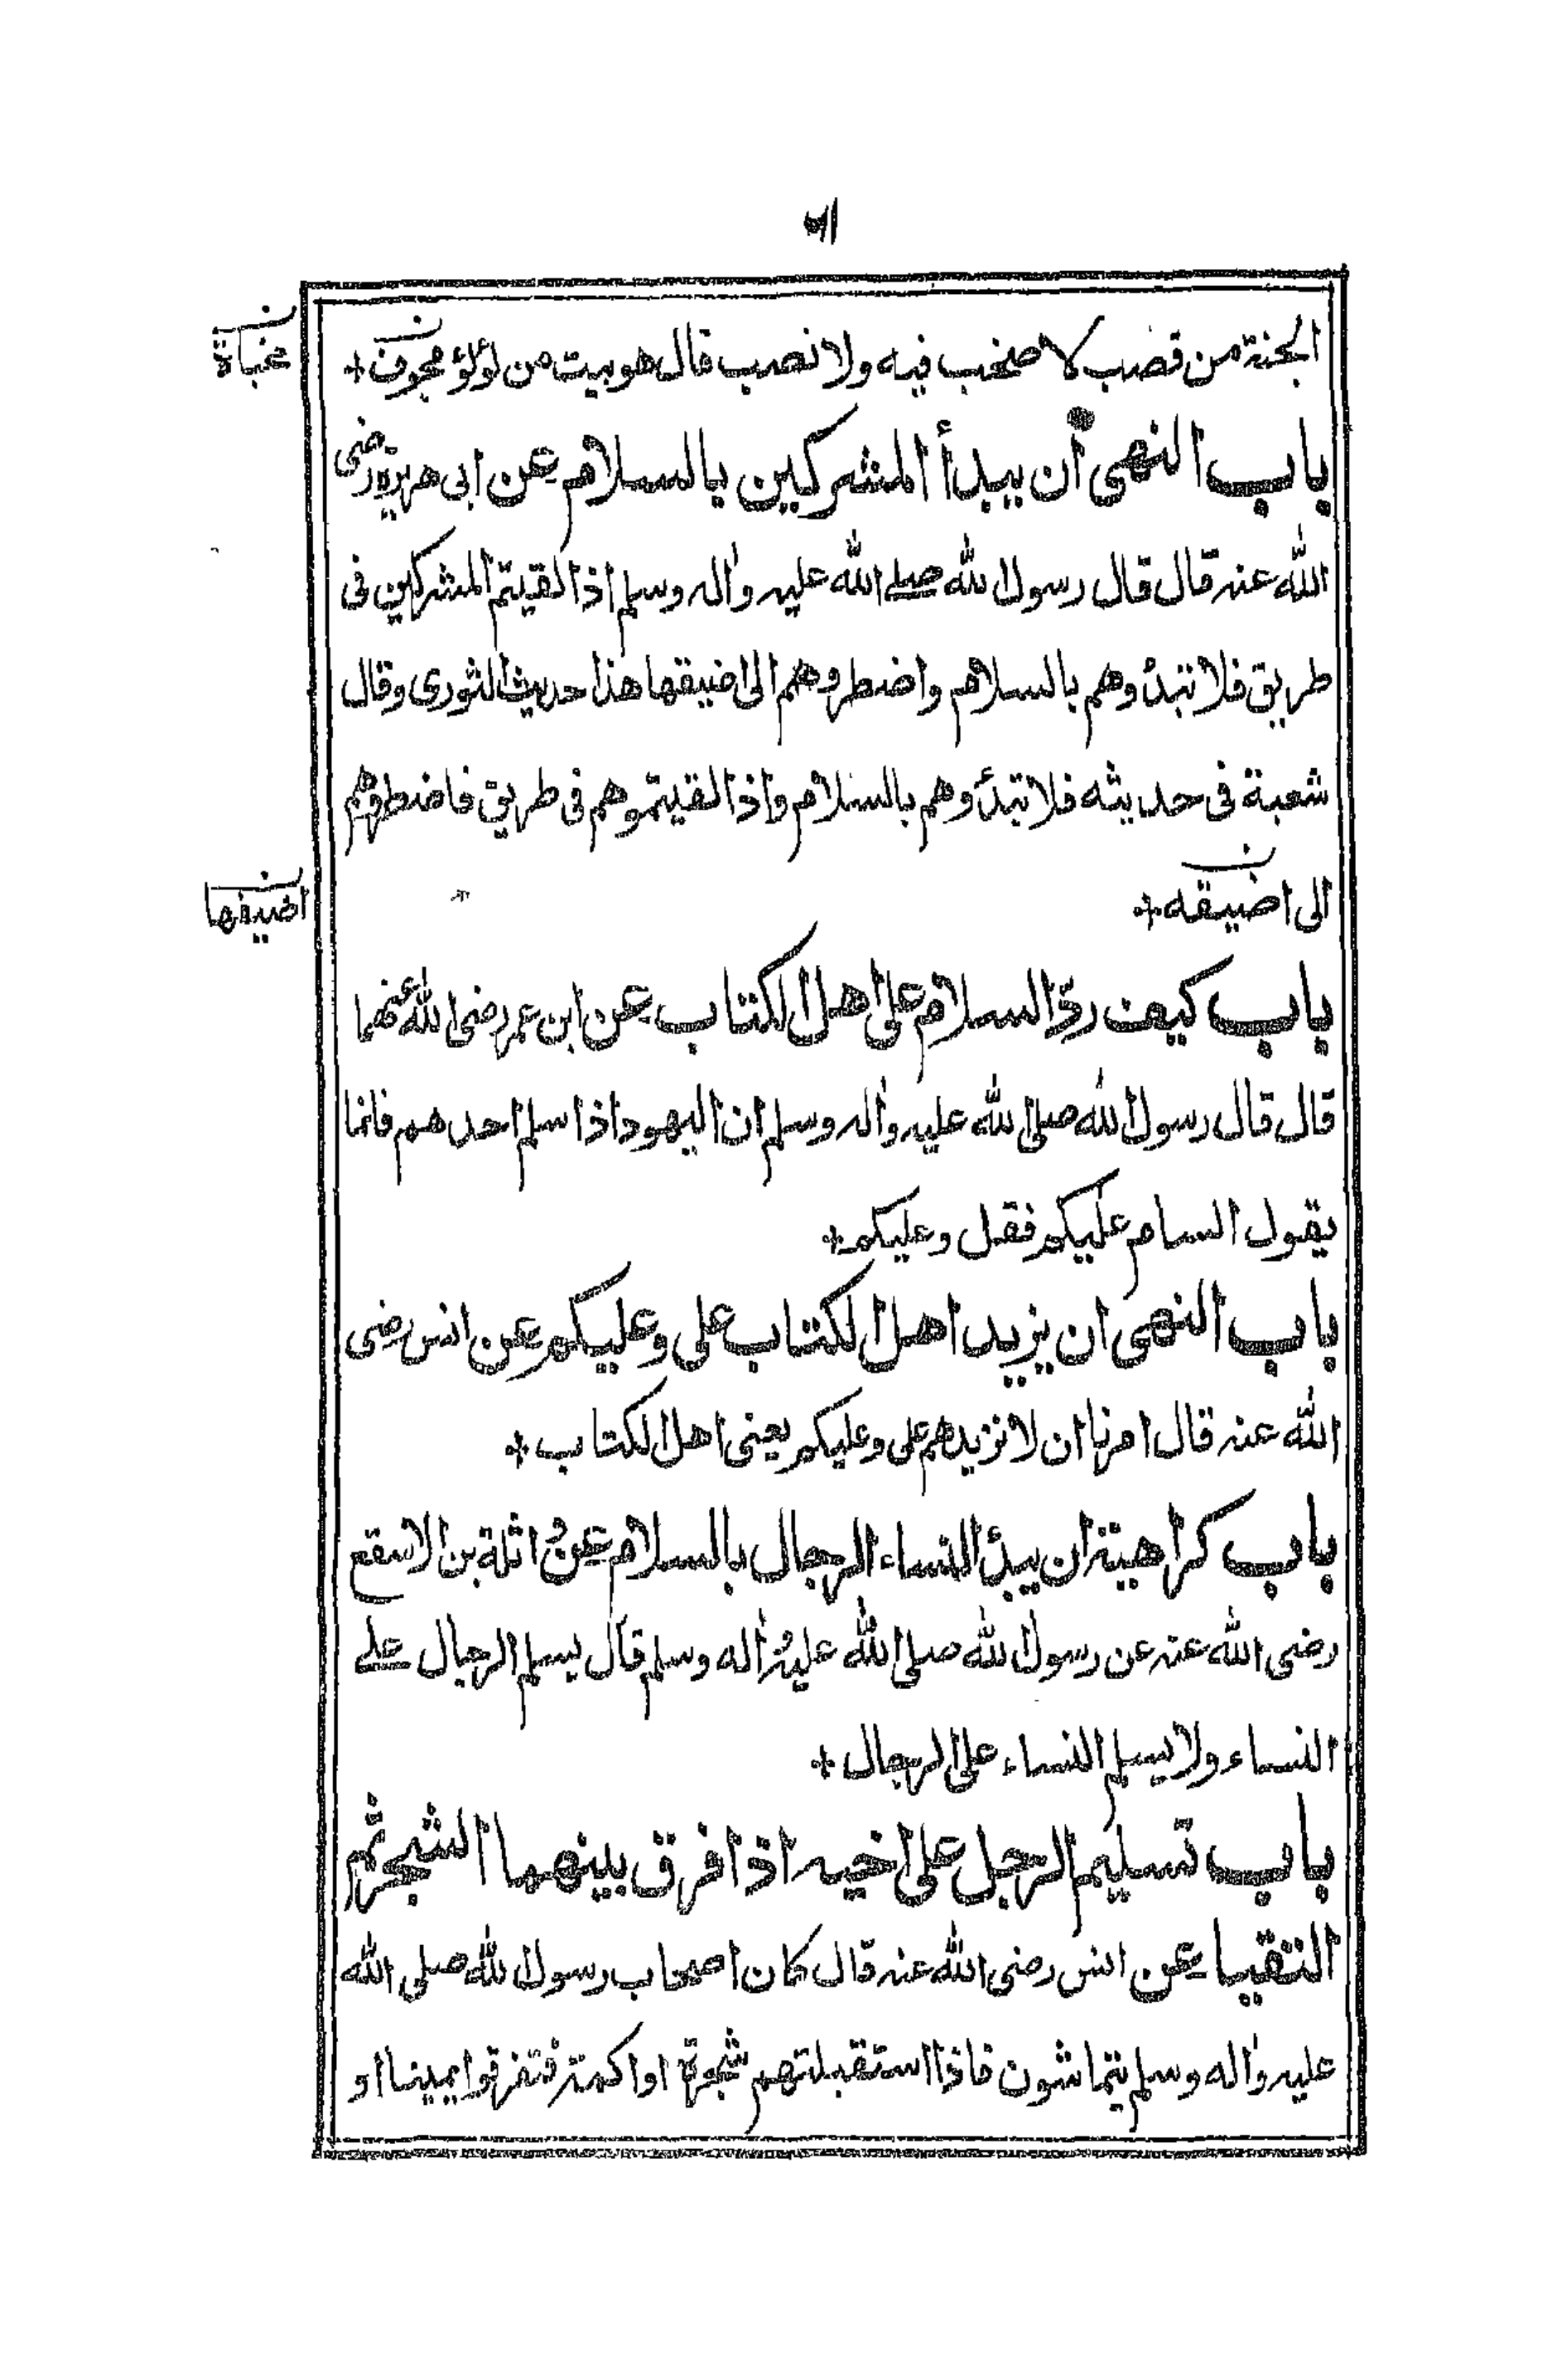 الجنة من قصب لا صخب فيه ولا نصب قال هو بيت من لؤلؤ مجوف +
مخباة
باب النهى أن يبدأ المشركين بالسلام عن ابى هريرة رضى
الله عنه قال قال رسول الله صلے الله عليه واٰله وسلم اذا لقيتم المشركين فى
طريق فلا تبدؤهم بالسلام واضطروهم الى اضيقها هذا حديث الثورى وقال
شعبة فى حديثه فلا تبدؤهم بالسلام واذا لقيتموهم فى طريق فاضطروهم
الى اضيقه +
اضيقها
باب كيف ردّ السلام على اهل الكتاب عن ابن عمر رضى الله عنهما
قال قال رسول الله صلى الله عليه واٰله وسلم ان اليهود اذا سلم احدهم فانما
يقول السام عليكم فقل وعليكم +
باب النهى ان يزيد اهل الكتاب على وعليكم عن انس رضى
الله عنه قال امرنا ان لا نزيدهم على وعليكم يعنى اهل الكتاب +
باب كراهية ان يبدئ النساء الرجال بالسلام عن واثلة بن الاسقع
رضى الله عنه عن رسول الله صلى الله عليه واٰله وسلم قال يسلم الرجال علے
النساء ولا يسلم النساء على الرجال +
باب تسليم الرجل على اخيه اذا فرق بينهما الشجر ثم
التقيا عن انس رضى الله عنه قال كان اصحاب رسول الله صلى الله
عليه واٰله وسلم يتماشون فاذا استقبلتهم شجرة او اكمة فتفرقوا يمينا او